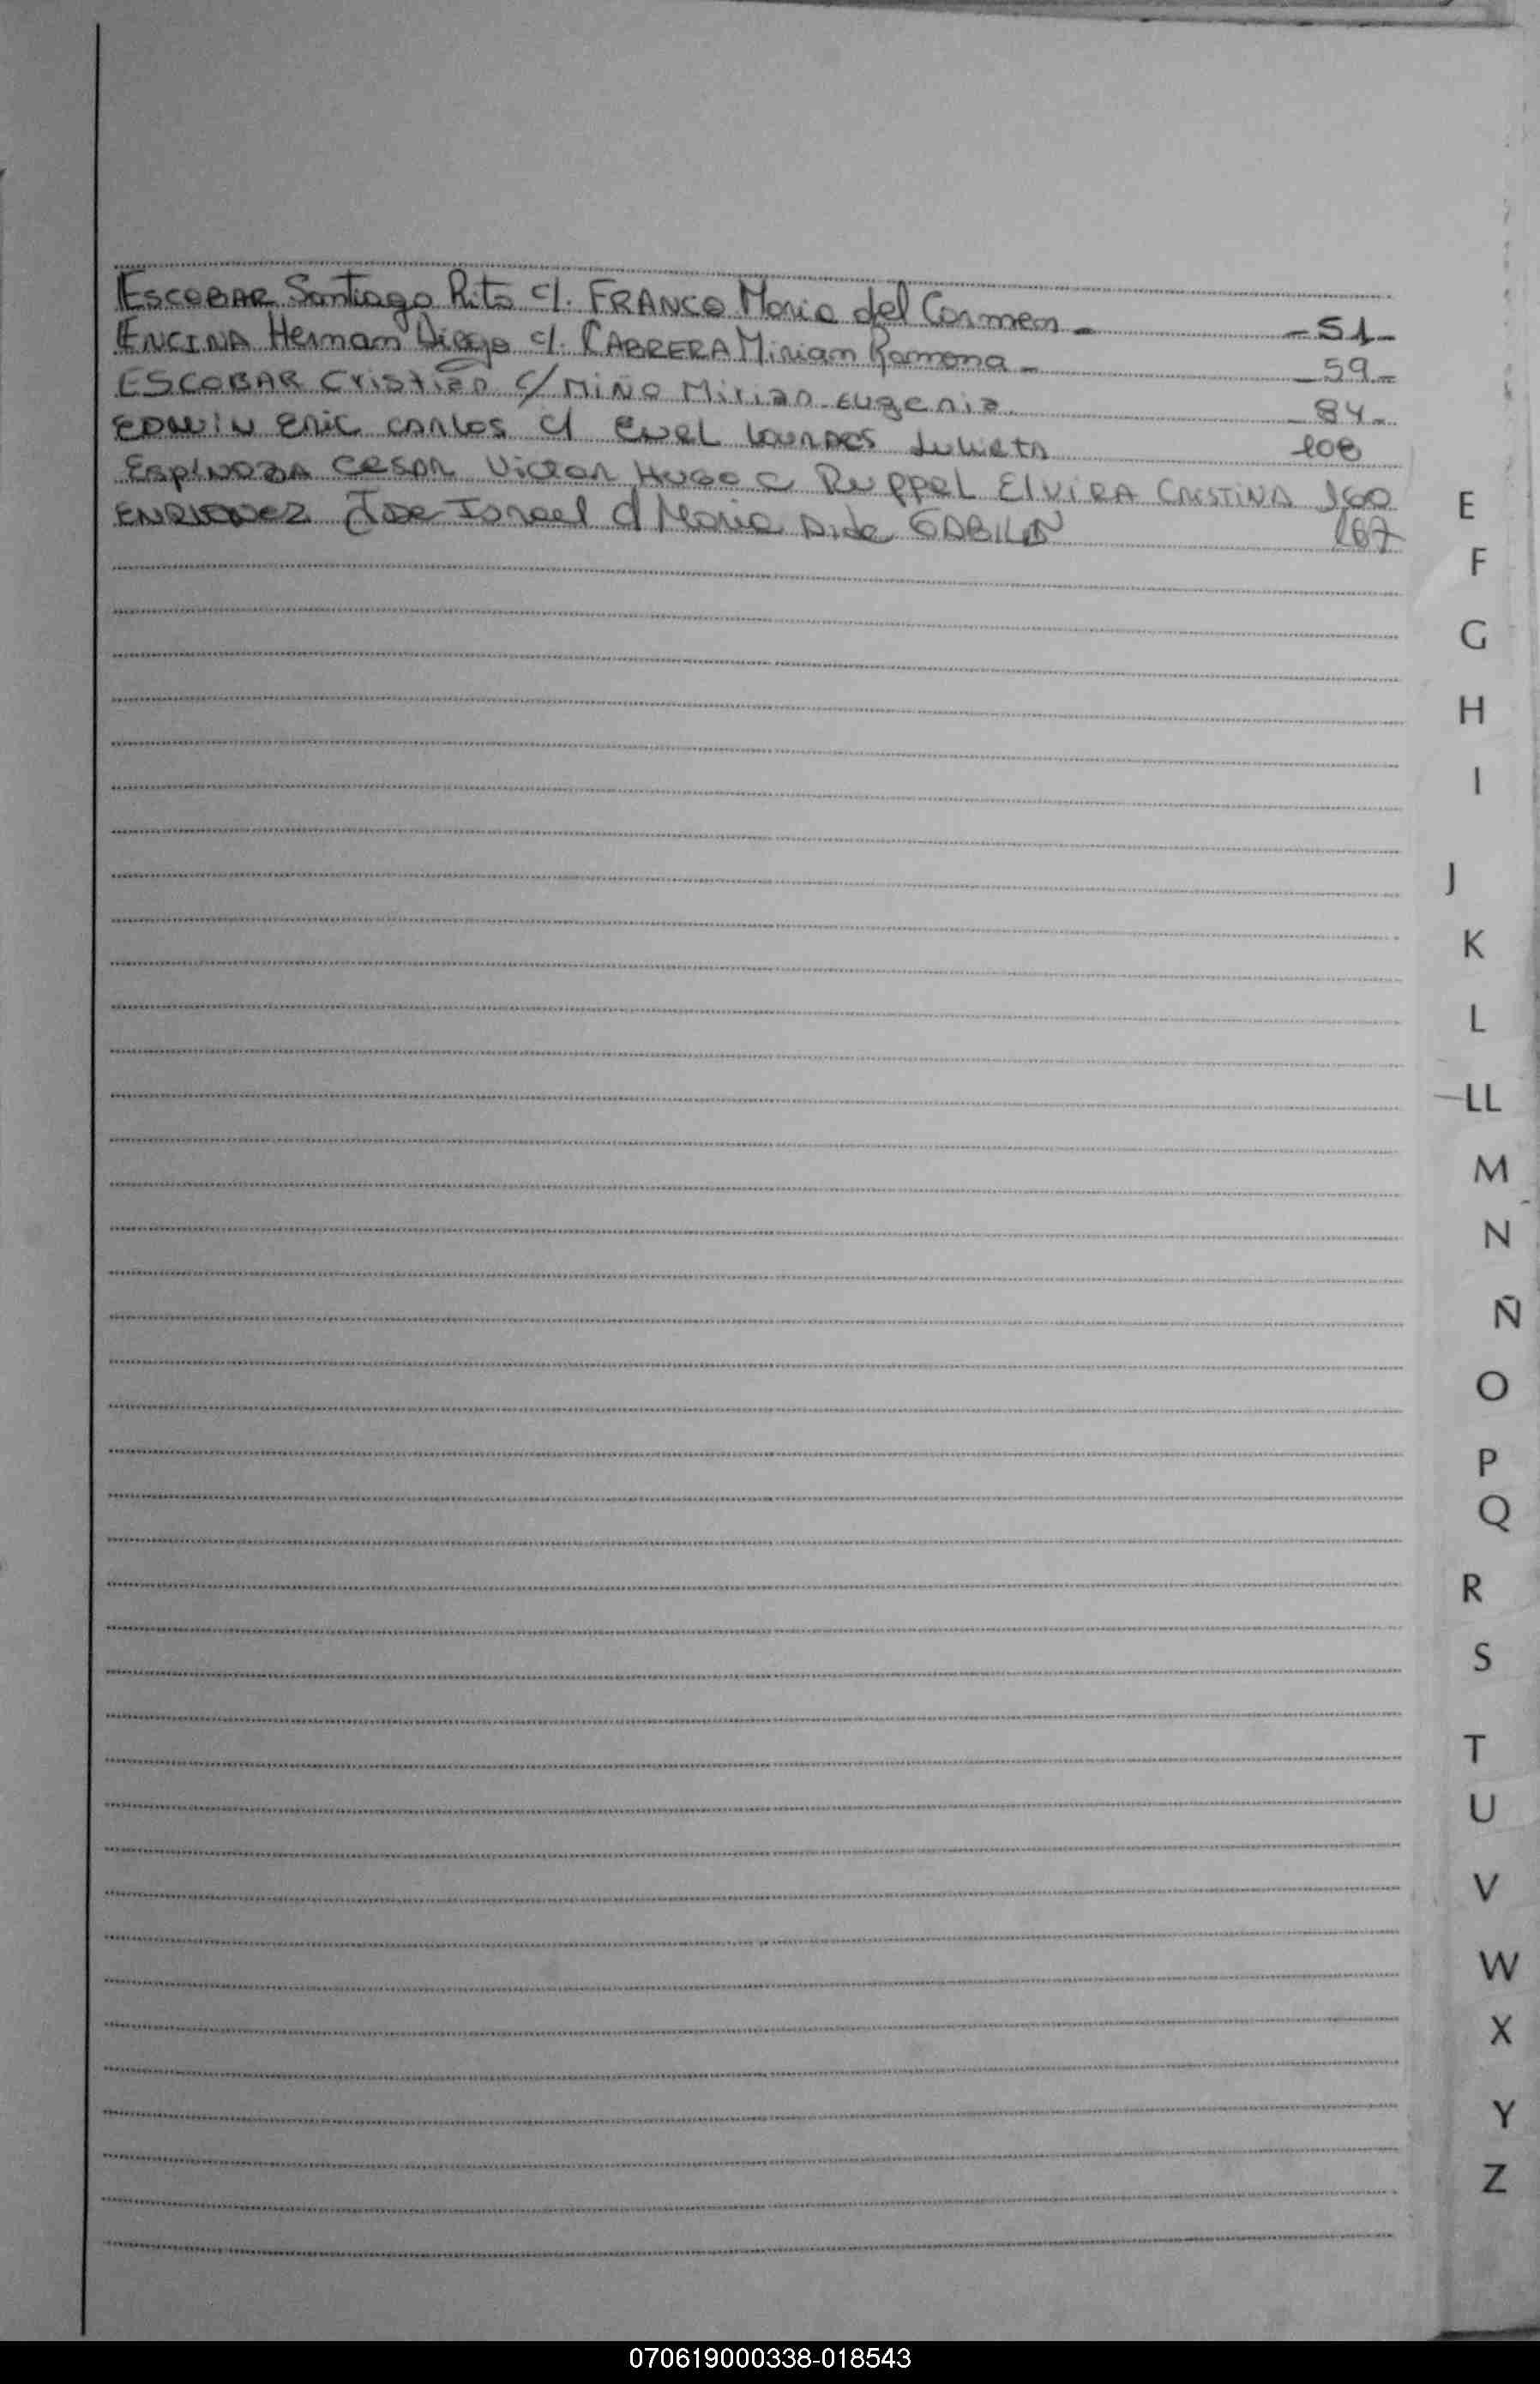 ESCOBAR Santiago Rito c/. FRANCO Maria del Carmen - -51-
ENCINA Hernam Diego c/. CABRERA Miriam Ramona - -59-
ESCOBAR Cristian c/ MIÑO Mirian Eugenia -84-
EDWIN ERIC CARLOS c/ LOURDES Julieta 108
ESPINOZA CESAR Victor HUGO c Ruppel ELVIRA CRISTINA 160
ENRIQUEZ Jose Israel c/ Maria Aide 167
E
F
G
H
I
J
K
L
LL
M
N
Ñ
O
P
Q
R
S
T
U
V
W
X
Y
Z
070619000338-018543